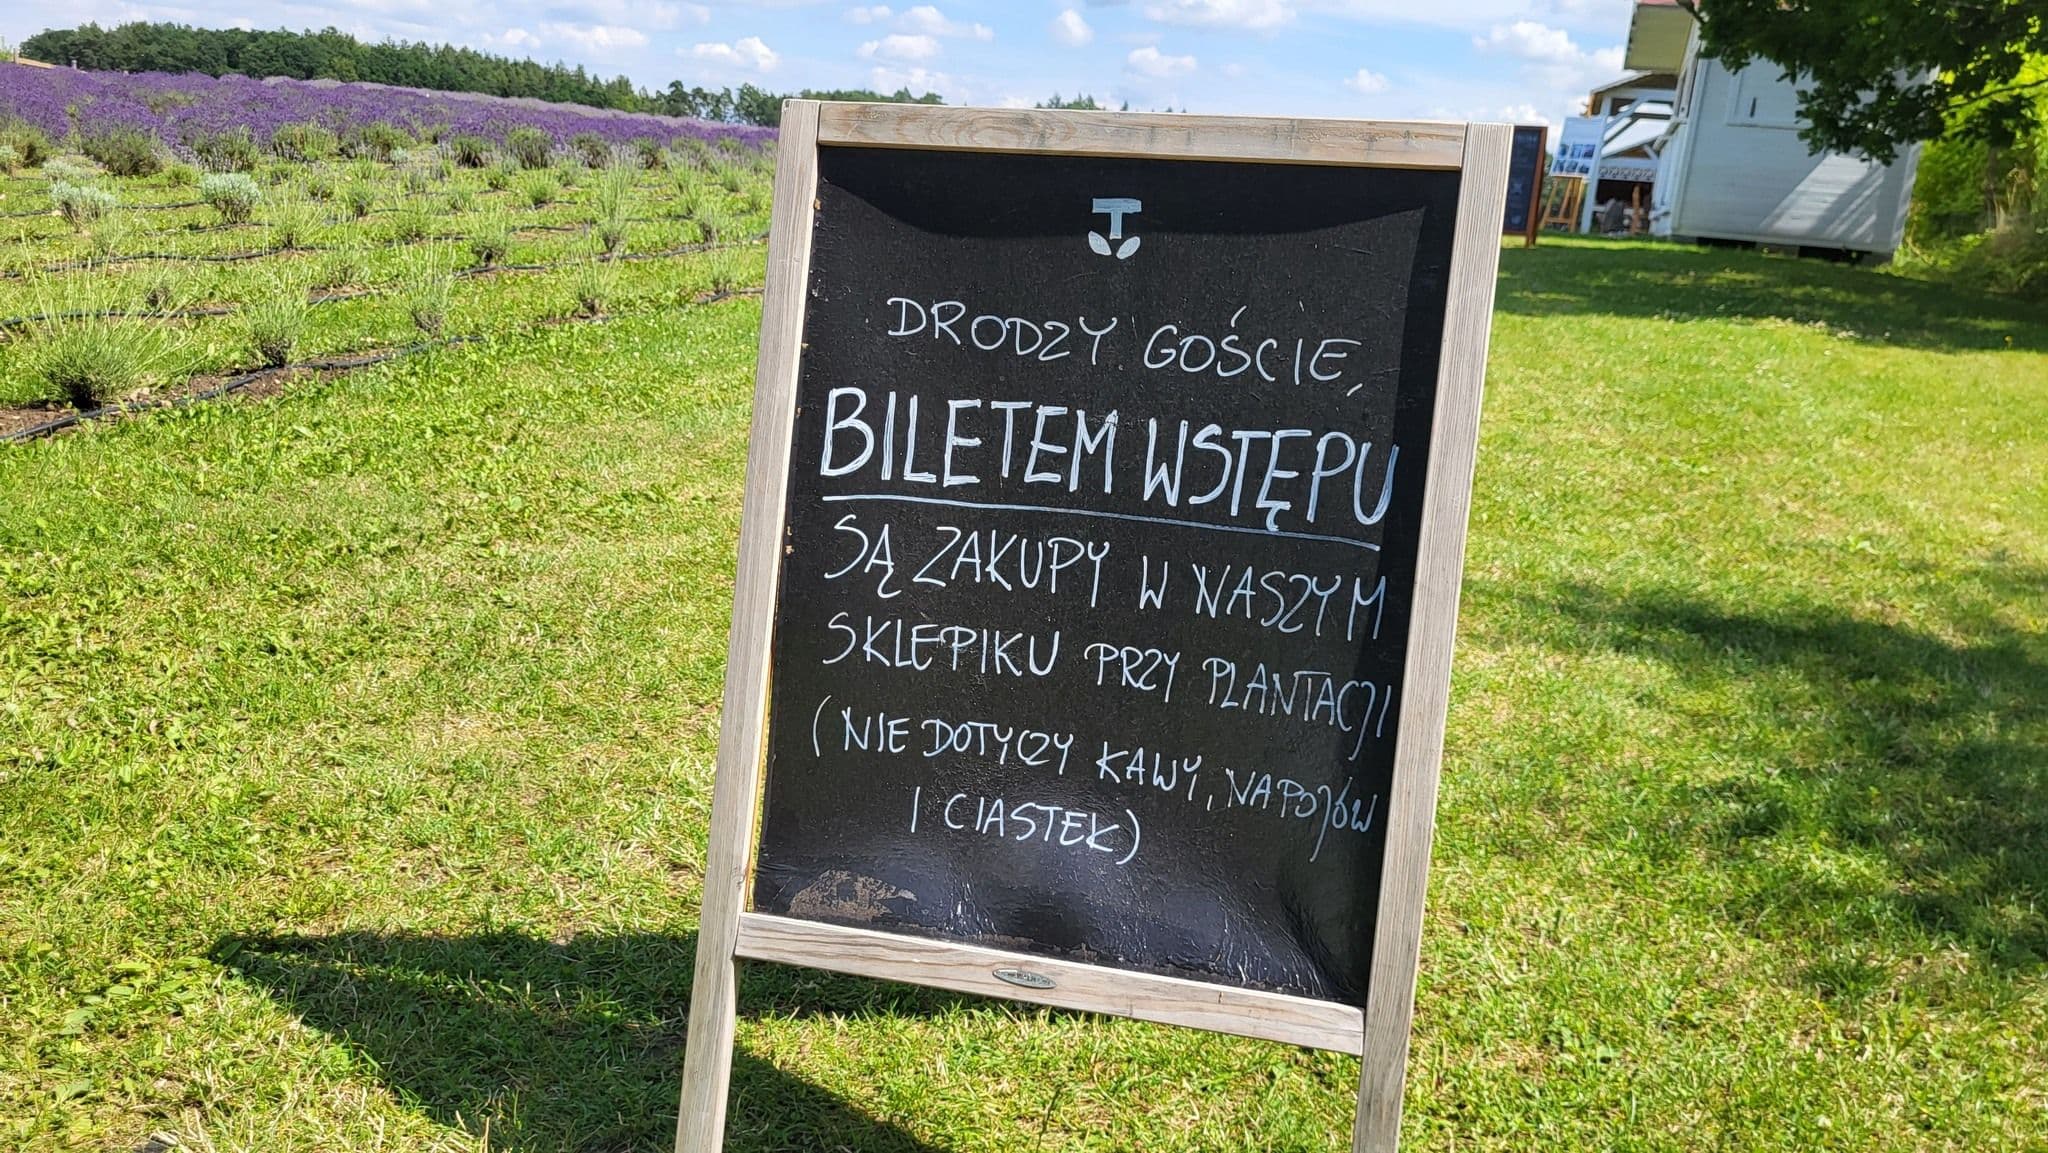 DRODZY GOŚCIE,
BILETEM WSTĘPU
SĄ ZAKUPY W NASZYM
SKLEPIKU PRZY PLANTACJI
(NIE DOTYCZY KAWY, NAPOJÓW
I CIASTEK)